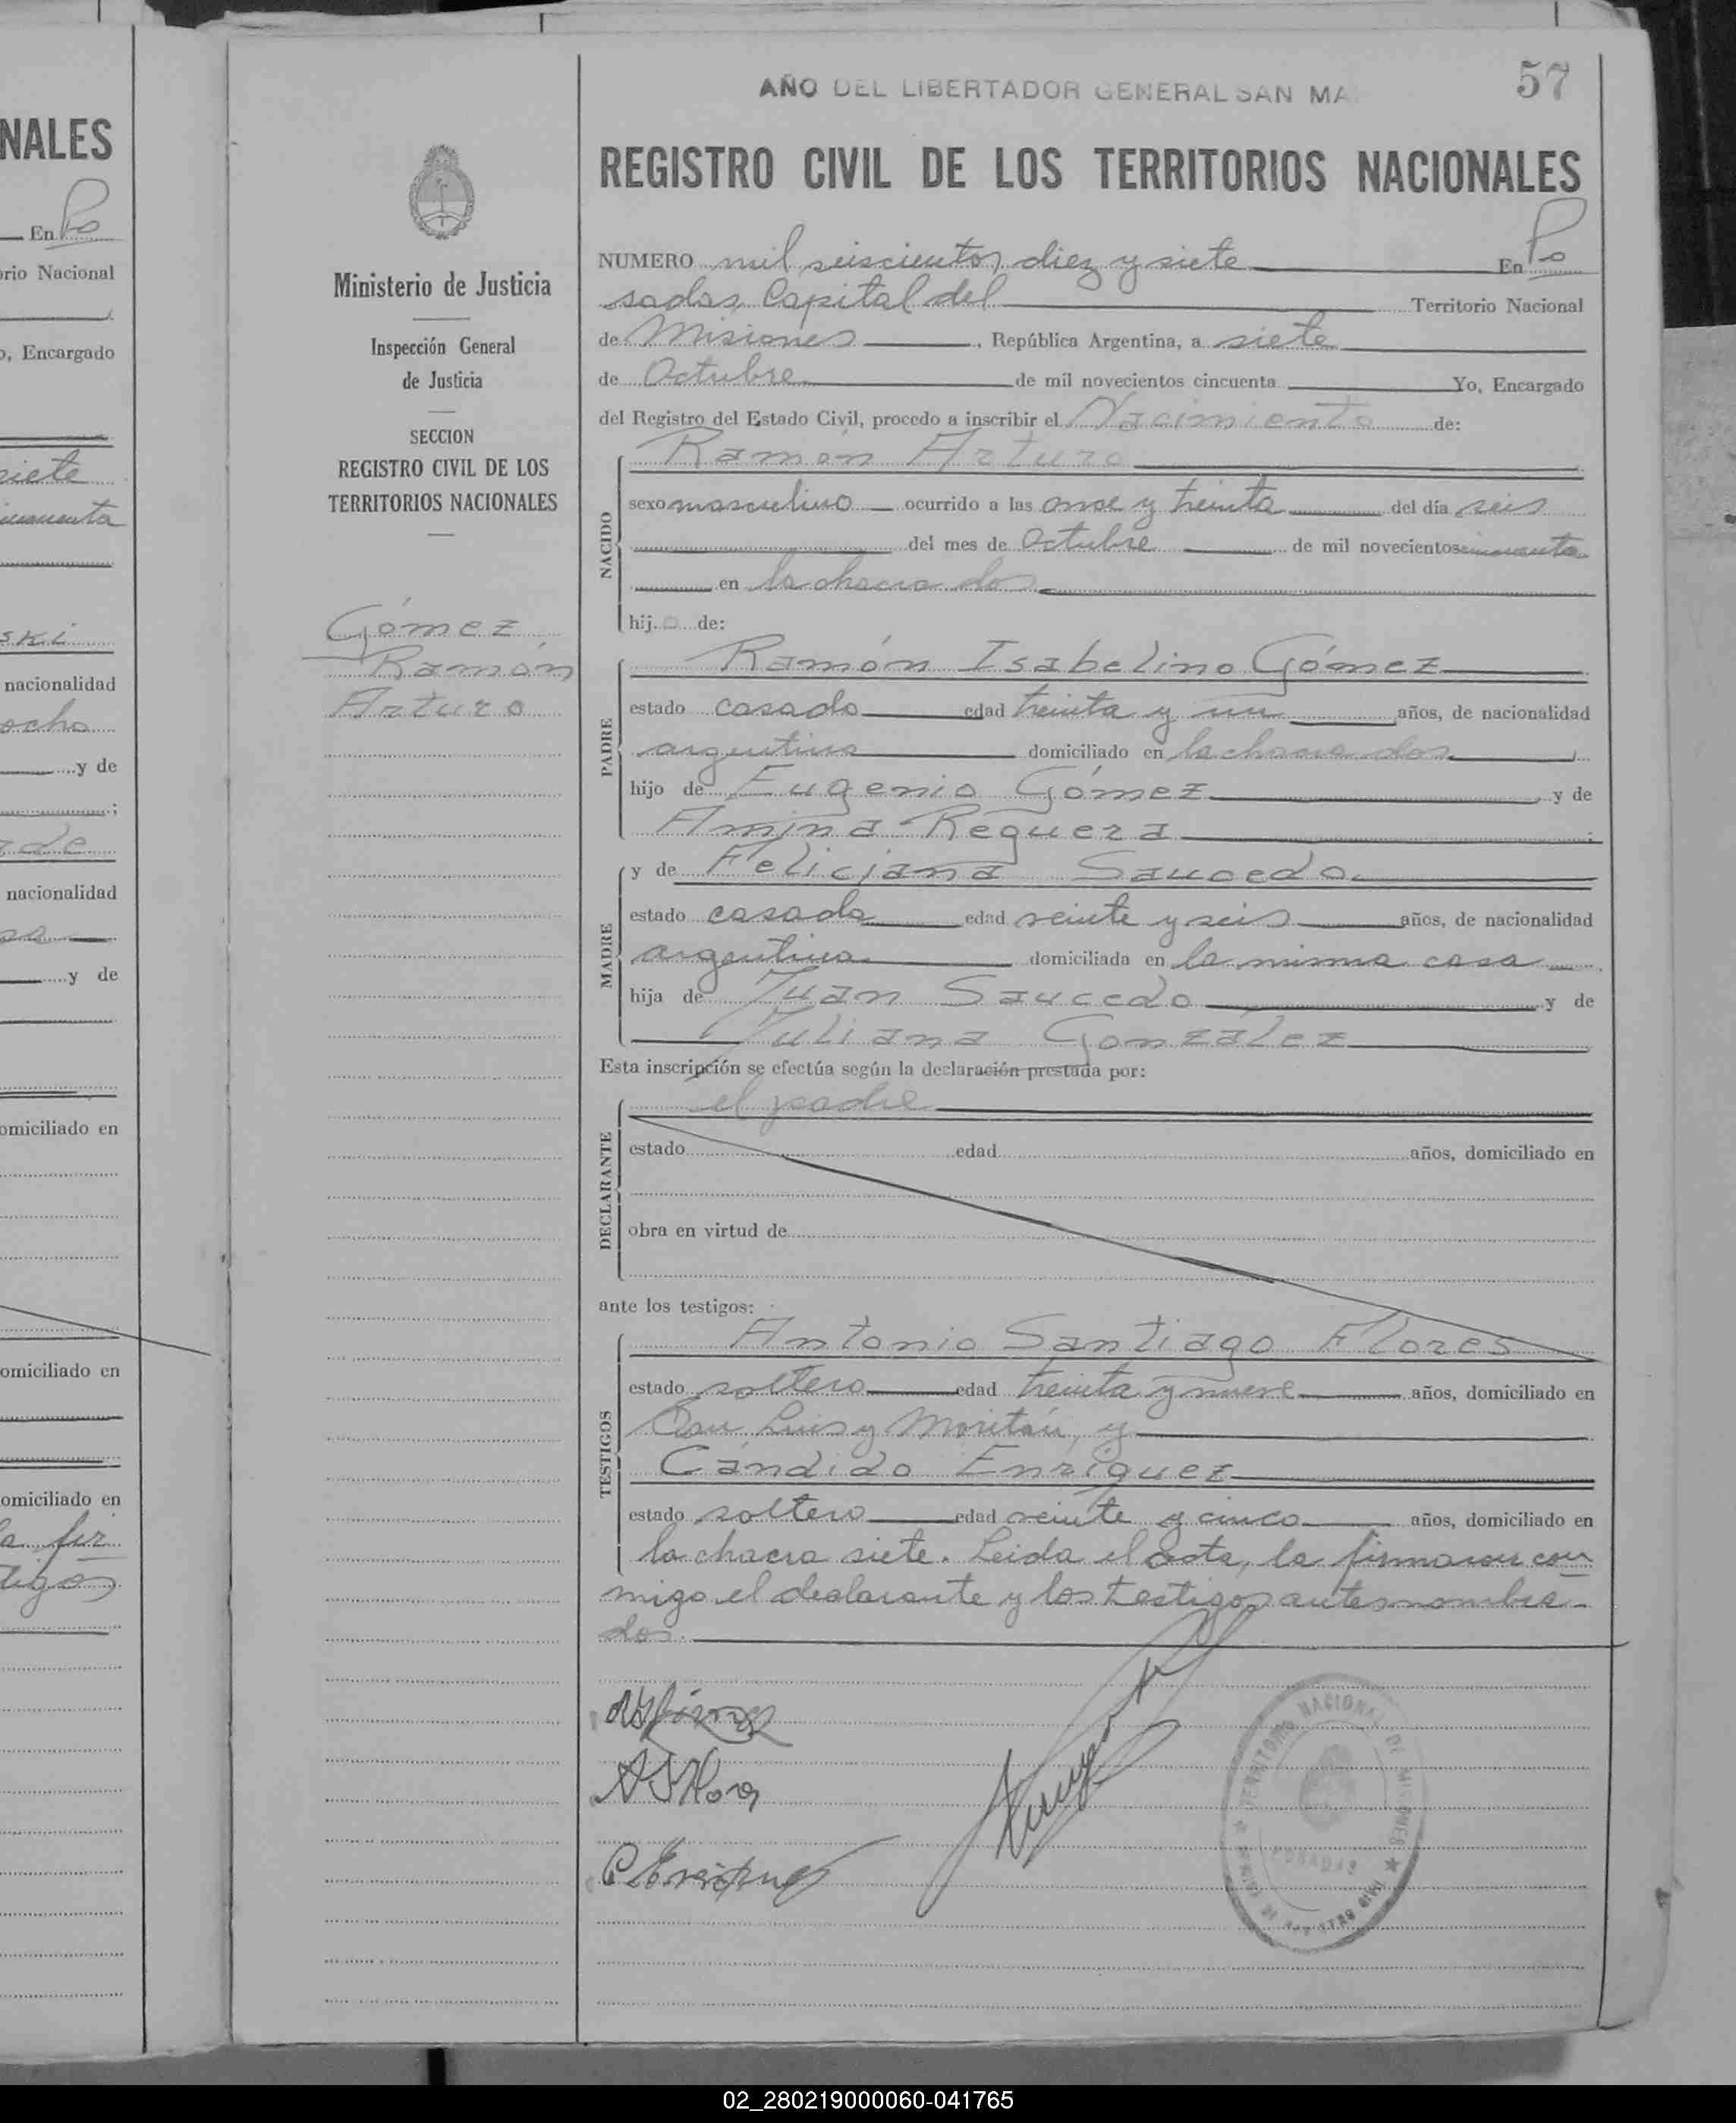 NALES
En Po
rio Nacional
o, Encargado
siete
cincuenta
ski
nacionalidad
ocho
y de
nacionalidad
y de
omiciliado en
omiciliado en
omiciliado en
la fir
tigos
Ministerio de Justicia
Inspección General
de Justicia
SECCION
REGISTRO CIVIL DE LOS
TERRITORIOS NACIONALES
Gómez
Ramón
Arturo
57
AÑO DEL LIBERTADOR GENERAL SAN MA
REGISTRO CIVIL DE LOS TERRITORIOS NACIONALES
NUMERO mil seiscientos diez y siete En Po
sadas, Capital del Territorio Nacional
de Misiones, República Argentina, a siete
de Octubre de mil novecientos cincuenta Yo, Encargado
del Registro del Estado Civil, procedo a inscribir el Nacimiento de:
NACIDO
Ramón Arturo
sexo masculino ocurrido a las once y treinta del día seis
del mes de Octubre de mil novecientos cincuenta
en la chacra dos
hijo de:
PADRE
Ramón Isabelino Gómez
estado casado edad treinta y un años, de nacionalidad
argentina domiciliado en la chacra dos
hijo de Eugenio Gómez y de
Amina Requera ;
MADRE
y de Feliciana Saucedo
estado casada edad veinte y seis años, de nacionalidad
argentina domiciliada en la misma casa
hija de Juan Saucedo y de
Juliana González
Esta inscripción se efectúa según la declaración prestada por:
DECLARANTE
el padre
estado edad años, domiciliado en
obra en virtud de
ante los testigos:
TESTIGOS
Antonio Santiago Flores
estado soltero edad treinta y nueve años, domiciliado en
San Luis y Moritán, y
Cándido Enríquez
estado soltero edad veinte y cinco años, domiciliado en
la chacra siete. Leida el acta, la firmaron con
migo el declarante y los testigos antes nombra-
dos.
R I Gómez
A S Flores
C Enríquez
TERRITORIO NACIONAL DE MISIONES
POSADAS
02_280219000060-041765